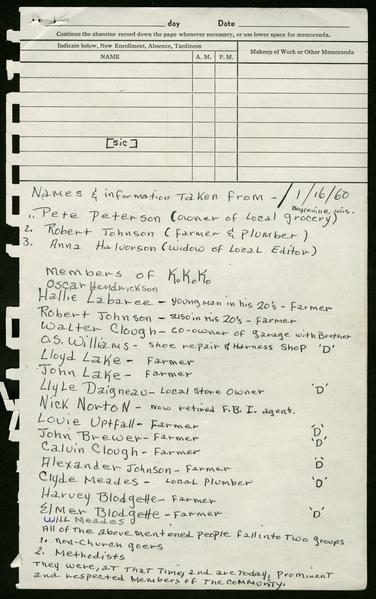 day Date
Continue the absentee record down the page whenever necessary, or use lower space for memoranda.
Indicate below, New Enrollment, Absence, Tardiness
Makeup of Work or Other Memoranda
NAME A. M. P. M.
[sic]
Names & information Taken from - 1/16/60
Boyceville, Wis.
1. Pete Peterson (owner of Local grocery)
2. Robert Johnson (farmer & Plumber)
3. Anna Halvorson (widow of Local Editor)
Members of K.K.K.
Oscar Hendrickson
Hallie Labaree - young man in his 20's - Farmer
Robert Johnson - also in his 20's - Farmer
Walter Clough - co-owner of garage with Brother
O.S. Williams - shoe repair & Harness Shop 'D'
Lloyd Lake - Farmer
John Lake - Farmer
Lyle Daigneau - Local store owner 'D'
Nick Norton - now retired F.B.I. agent.
Louie Uptfall - Farmer 'D'
John Brewer - Farmer 'D'
Calvin Clough - Farmer
Alexander Johnson - Farmer 'D'
Clyde Meades - Local Plumber 'D'
Harvey Blodgette - Farmer
Elmer Blodgette - Farmer 'D'
Will Meades
All of the above mentioned people fall into Two groups
1. Non-Church goers
2. Methodists
They were, at That Time, and are Today, Prominent
and respected Members of The Community.